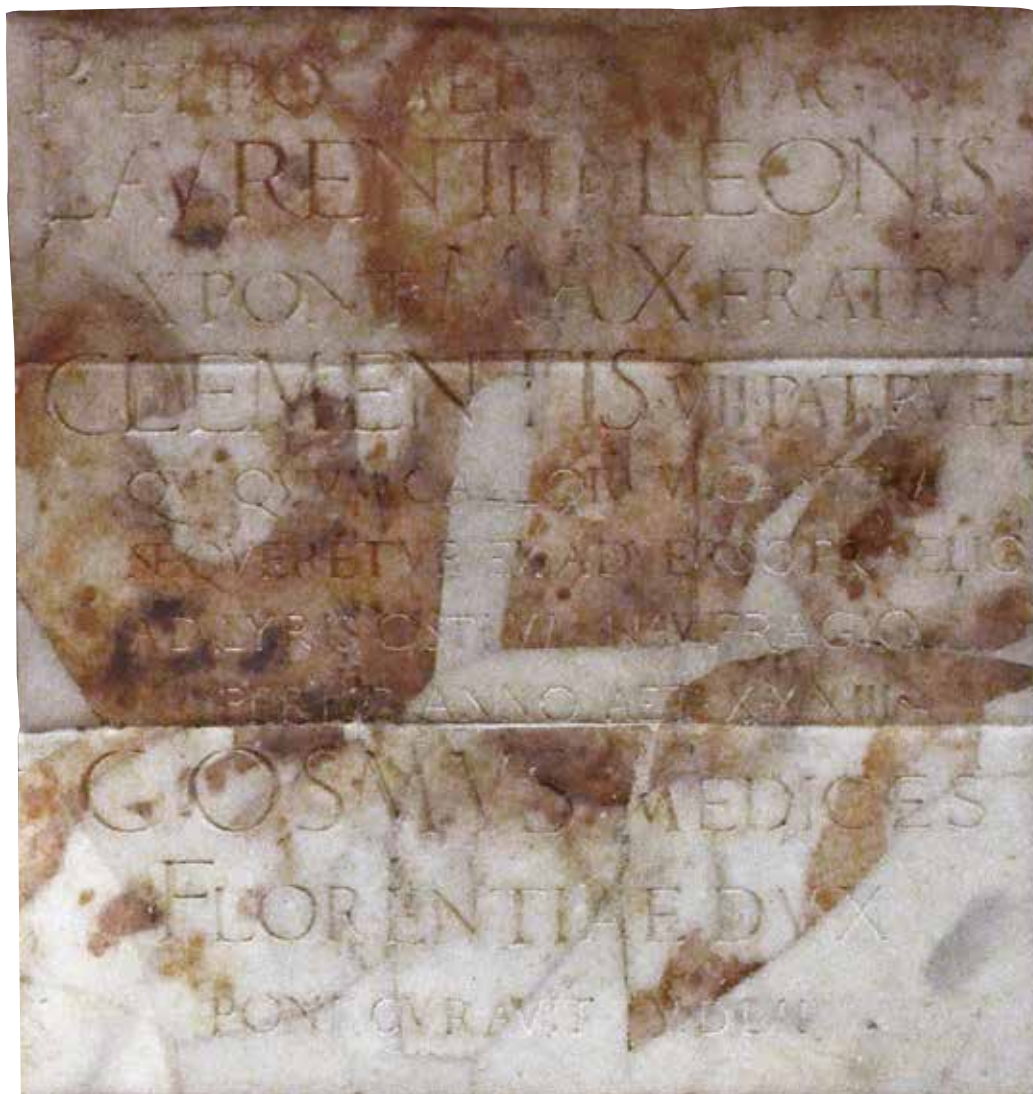 PETRO MEDICI MAGNI
LAVRENTII F LEONIS
X PONT MAX FRATRI
CLEMENTIS·VII·PATRVELI
QVI QVVM GALLORVM CASTRA
SEQVERETVR EX ADVERSO PRAELIO
AD LYRIS OSTIVM NAVFRAGIO
PERIIT ANNO AET XXXIII
COSMVS MEDICES
FLORENTIAE DVX
PONI CVRAVIT